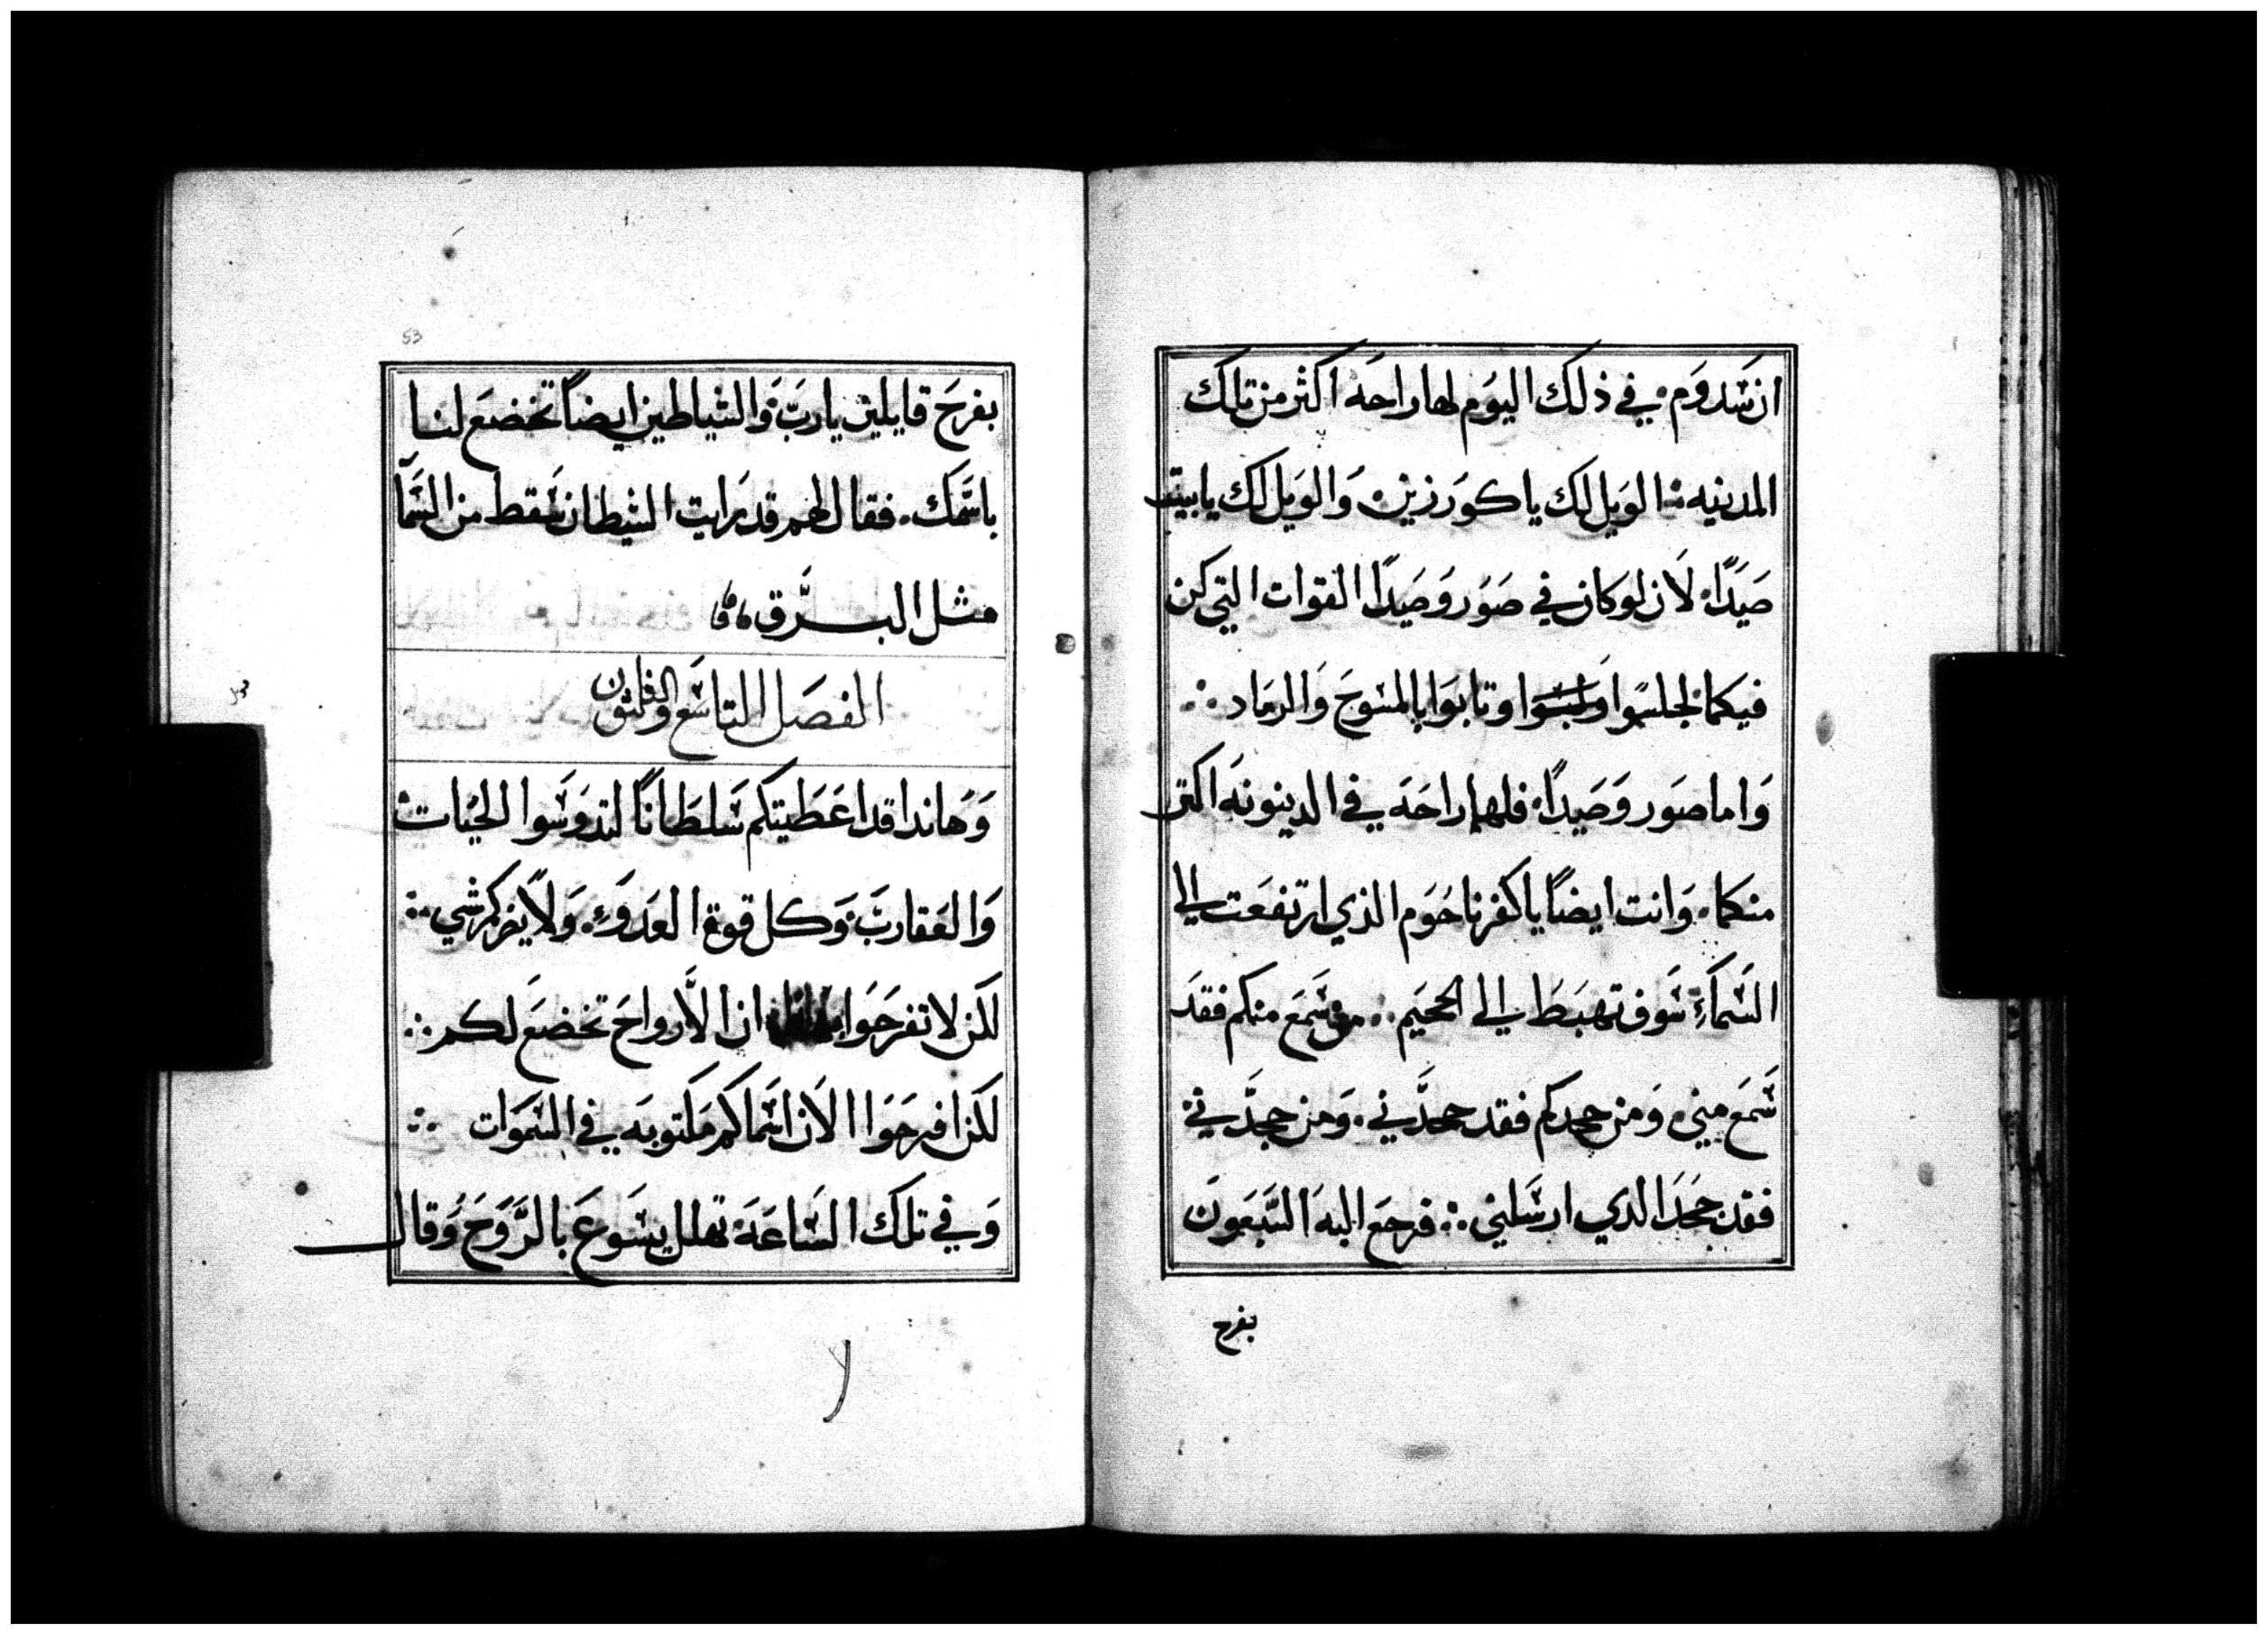 ان سَدوَم في ذلك اليوَم لها راحَه اكثر من تلك
المدنيه الوَيل لك يا كوَرزين وَالوَيل لك يا بيت
صَيَدًا لَان لو كان في صَوَر وَصَيَدًا القوات التي كن
فيكما لجلسَوا وَلبسَوا وتابوَا بالمسَوحَ وَالرمَاد
وَاما صوَر وَصَيدًا فلهما راحَة في الدينونَة اكتر
منكما وَانت ايضًا يا كفرناحَوَم الذي ارتفعَت الى
السَماءِ سَوف تهبَطَ الى الجحيَم من سَمعَ منكم فقدَ
سَمعَ مني وَمن جحدكم فقد جحدَّني وَمن جحدَّني
فقد جحَدَ الدي ارسَلني فرجعَ اليهَ السَّبعَونَ
بفرح
53
بفرحَ قايلين يا ربَّ وَالشياطين ايضًا تخضعَ لنا
باسَمك فقال لهم قد رَايت الشيطان سَقط من السَمآ
مثل البَّرق
الفصَل التاسَع والثلثون
وَهَاندا قد اعَطَيتكم سَلطَانًا لتدوَسَوا الحيَات
وَالعَقاربَ وَكل قوة العَدوَ وَلَا يضركم شي
لكن لا تفرحَوَا ان الأَرواحَ تخضعَ لكم
لكن افرحَوَا الان اسَماكم مَكتوبه في السَموَات
وَفي تلك السَاعَة تهلل يسَوعَ بالرَّوَحَ وَقال